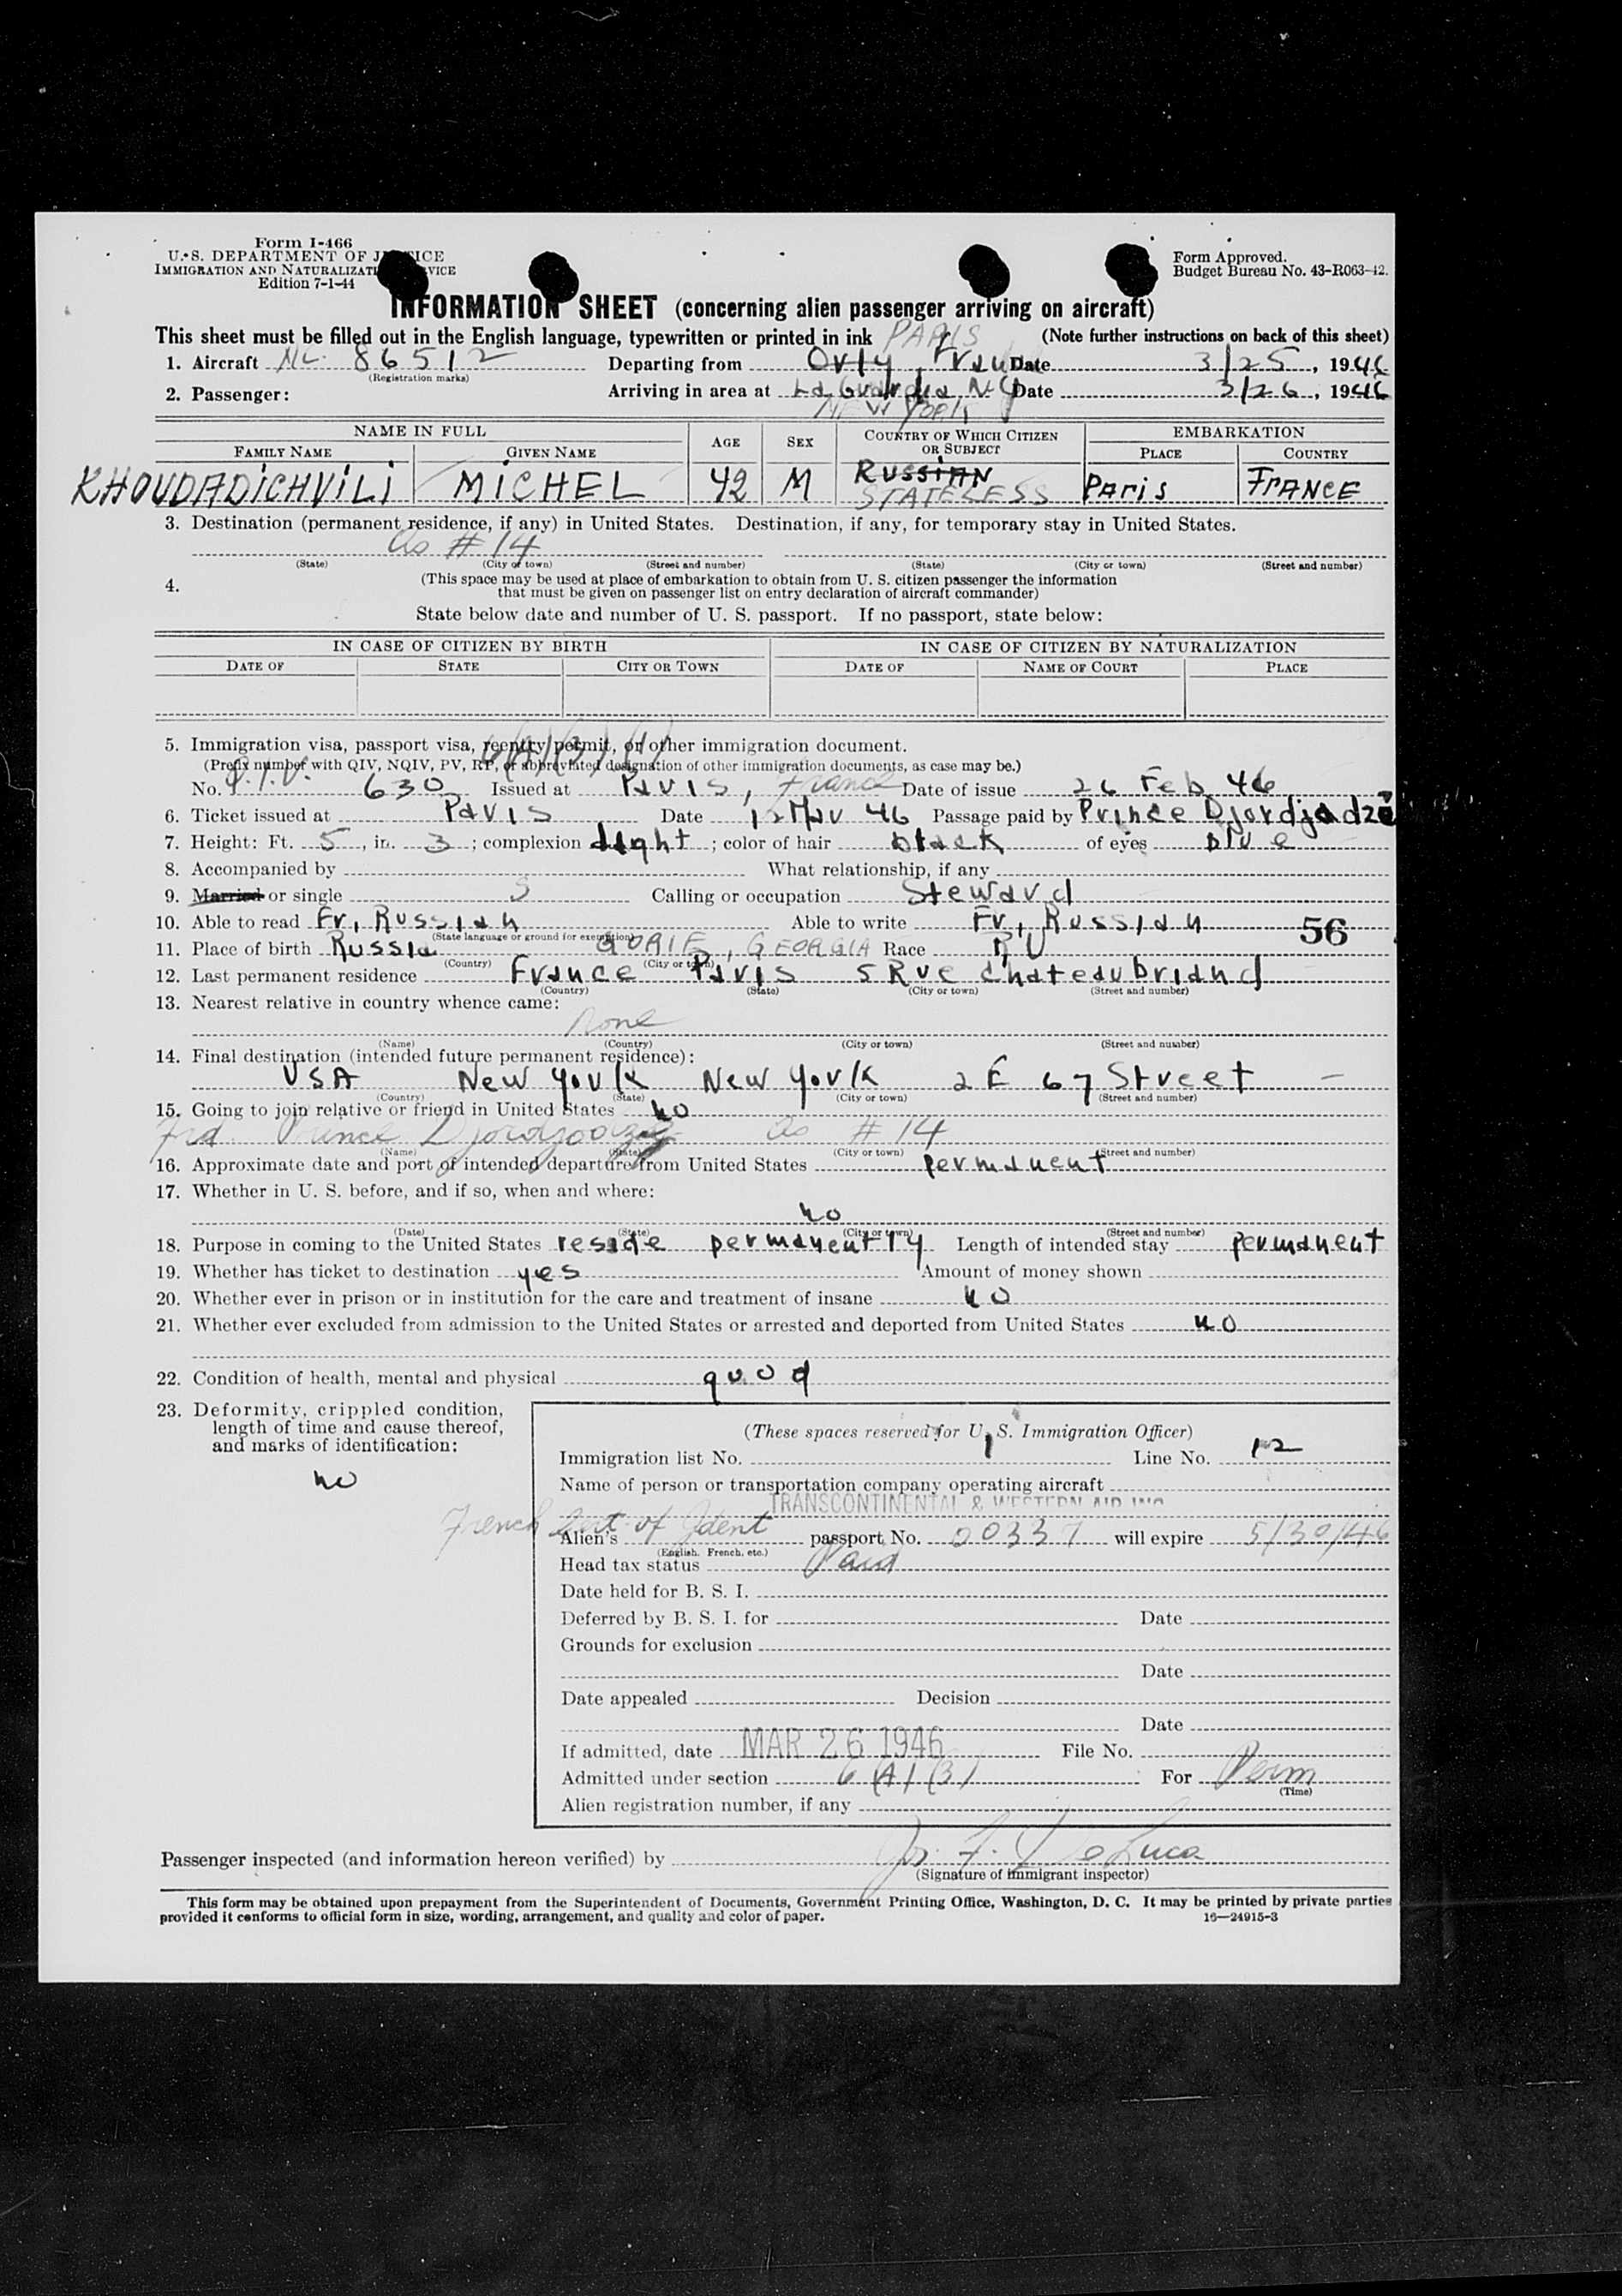 Form I-466
U. S. DEPARTMENT OF JUSTICE
IMMIGRATION AND NATURALIZATION SERVICE
Edition 7-1-44
Form Approved.
Budget Bureau No. 43-R063-42.
INFORMATION SHEET (concerning alien passenger arriving on aircraft)
This sheet must be filled out in the English language, typewritten or printed in ink PARIS (Note further instructions on back of this sheet)
1. Aircraft NC. 86512 Departing from Orly, France Date 3/25, 1946
(Registration marks)
2. Passenger: Arriving in area at La Guardia NY Date 3/26, 1946
NEW YORK
NAME IN FULL AGE SEX COUNTRY OF WHICH CITIZEN OR SUBJECT EMBARKATION
FAMILY NAME GIVEN NAME PLACE COUNTRY
KHOUDADICHVILI MICHEL 42 M RUSSIAN STATELESS PARIS FRANCE
3. Destination (permanent residence, if any) in United States. Destination, if any, for temporary stay in United States.
as # 14
(State) (City or town) (Street and number) (State) (City or town) (Street and number)
4. (This space may be used at place of embarkation to obtain from U. S. citizen passenger the information
that must be given on passenger list on entry declaration of aircraft commander)
State below date and number of U. S. passport. If no passport, state below:
IN CASE OF CITIZEN BY BIRTH IN CASE OF CITIZEN BY NATURALIZATION
DATE OF STATE CITY OR TOWN DATE OF NAME OF COURT PLACE
5. Immigration visa, passport visa, reentry permit, or other immigration document.
(Prefix number with QIV, NQIV, PV, RP, or abbreviated designation of other immigration documents, as case may be.)
No. 630 Issued at Paris, France Date of issue 26 Feb 46
6. Ticket issued at Paris Date 12 Mar 46 Passage paid by Prince Djordjadze
7. Height: Ft. 5, in. 3; complexion light; color of hair black of eyes blue
8. Accompanied by What relationship, if any
9. Married or single S Calling or occupation Steward
10. Able to read Fr, Russian Able to write Fr, Russian 56
(State language or ground for exemption)
11. Place of birth Russia GORIE, GEORGIA Race RU
(Country) (City or town)
12. Last permanent residence France Paris 5 Rue Chateaubriand
(Country) (State) (City or town) (Street and number)
13. Nearest relative in country whence came:
none
(Name) (Country) (City or town) (Street and number)
14. Final destination (intended future permanent residence):
USA New York New York 2 E 67 Street
(Country) (State) (City or town) (Street and number)
15. Going to join relative or friend in United States no
Frd Prince Djordjadze as # 14
(Name) (State) (City or town) (Street and number)
16. Approximate date and port of intended departure from United States permanent
17. Whether in U. S. before, and if so, when and where:
no
(Date) (State) (City or town) (Street and number)
18. Purpose in coming to the United States reside permanently Length of intended stay permanent
19. Whether has ticket to destination yes Amount of money shown
20. Whether ever in prison or in institution for the care and treatment of insane no
21. Whether ever excluded from admission to the United States or arrested and deported from United States no
22. Condition of health, mental and physical good
23. Deformity, crippled condition,
length of time and cause thereof,
and marks of identification:
no
(These spaces reserved for U. S. Immigration Officer)
Immigration list No. 1 Line No. 12
Name of person or transportation company operating aircraft
TRANSCONTINENTAL & WESTERN AIR INC
French Cert of Ident
Alien's passport No. 00337 will expire 5/30/46
(English, French, etc.)
Head tax status Paid
Date held for B. S. I.
Deferred by B. S. I. for Date
Grounds for exclusion
Date
Date appealed Decision
Date
If admitted, date MAR 26 1946 File No.
Admitted under section 6(A)(3) For Perm
(Time)
Alien registration number, if any
Passenger inspected (and information hereon verified) by Jos. F. De Luca
(Signature of immigrant inspector)
This form may be obtained upon prepayment from the Superintendent of Documents, Government Printing Office, Washington, D. C. It may be printed by private parties
provided it conforms to official form in size, wording, arrangement, and quality and color of paper. 16—24915-3